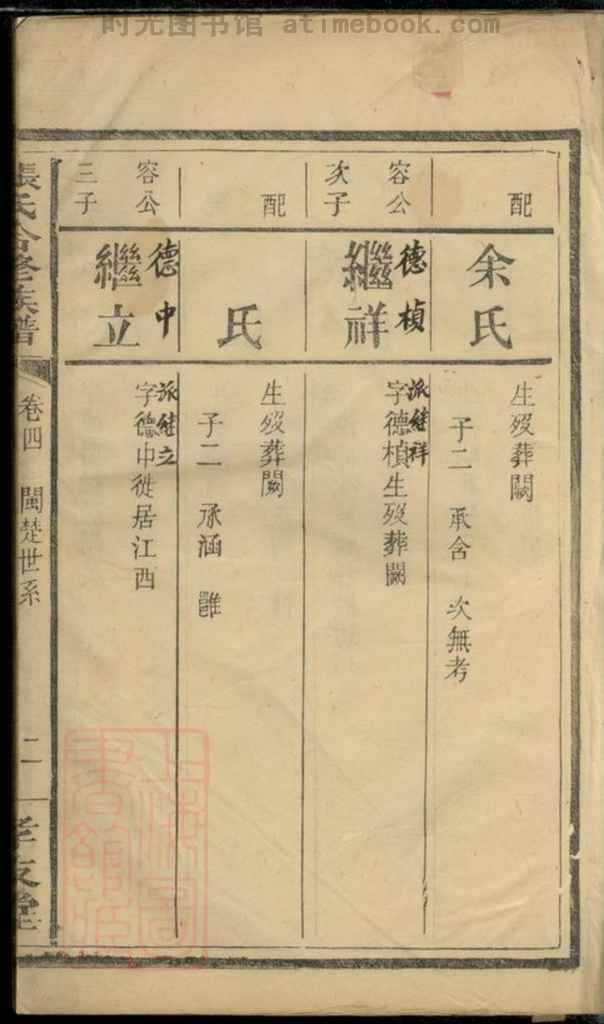 时光图书馆 atimebook.com
配
余氏
生歿葬闕
子二 承含 次無考
容公
次子
德楨
繼祥
派継祥
字德楨生歿葬闕
配
氏
生歿葬闕
子二 承涵 雝
容公
三子
德中
繼立
派継立
字德中徙居江西
張氏合修族譜
卷四 閩楚世系
二
孝友堂